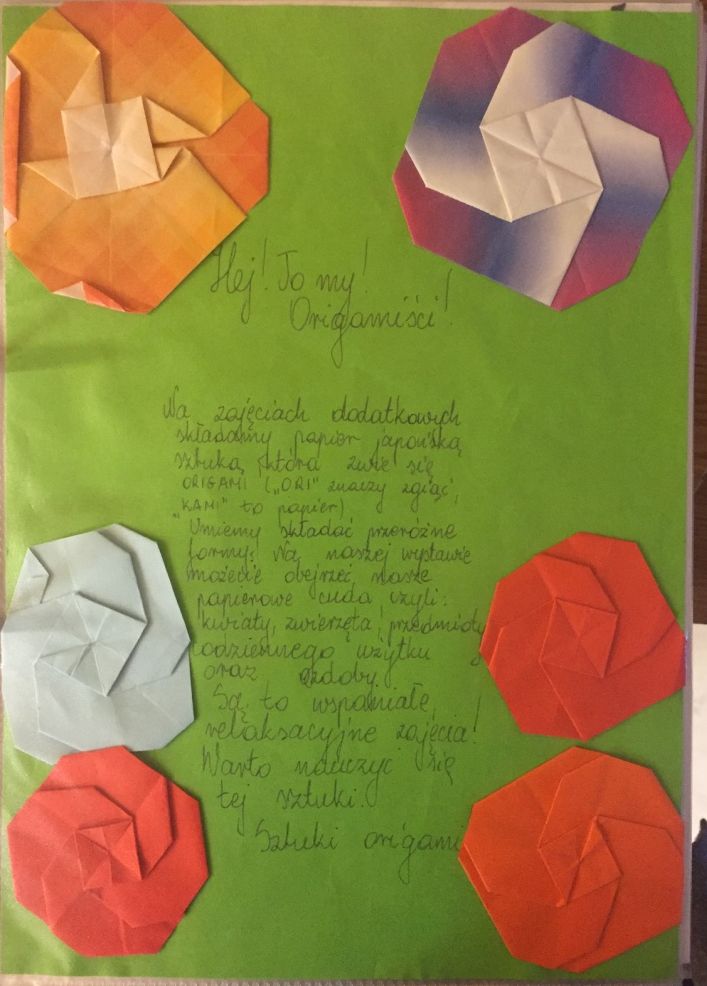 Hej! To my!
Origamiści!
Na zajęciach dodatkowych
składamy papier japońską
sztuką, która zwie się
ORIGAMI („ORI" znaczy zgiąć,
„KAMI" to papier)
Umiemy składać przeróżne
formy. Na naszej wystawie
możecie obejrzeć nasze
papierowe cuda czyli:
kwiaty, zwierzęta, przedmioty
codziennego użytku
oraz ozdoby.
Są to wspaniałe,
relaksacyjne zajęcia!
Warto nauczyć się
tej sztuki.
Sztuki origami